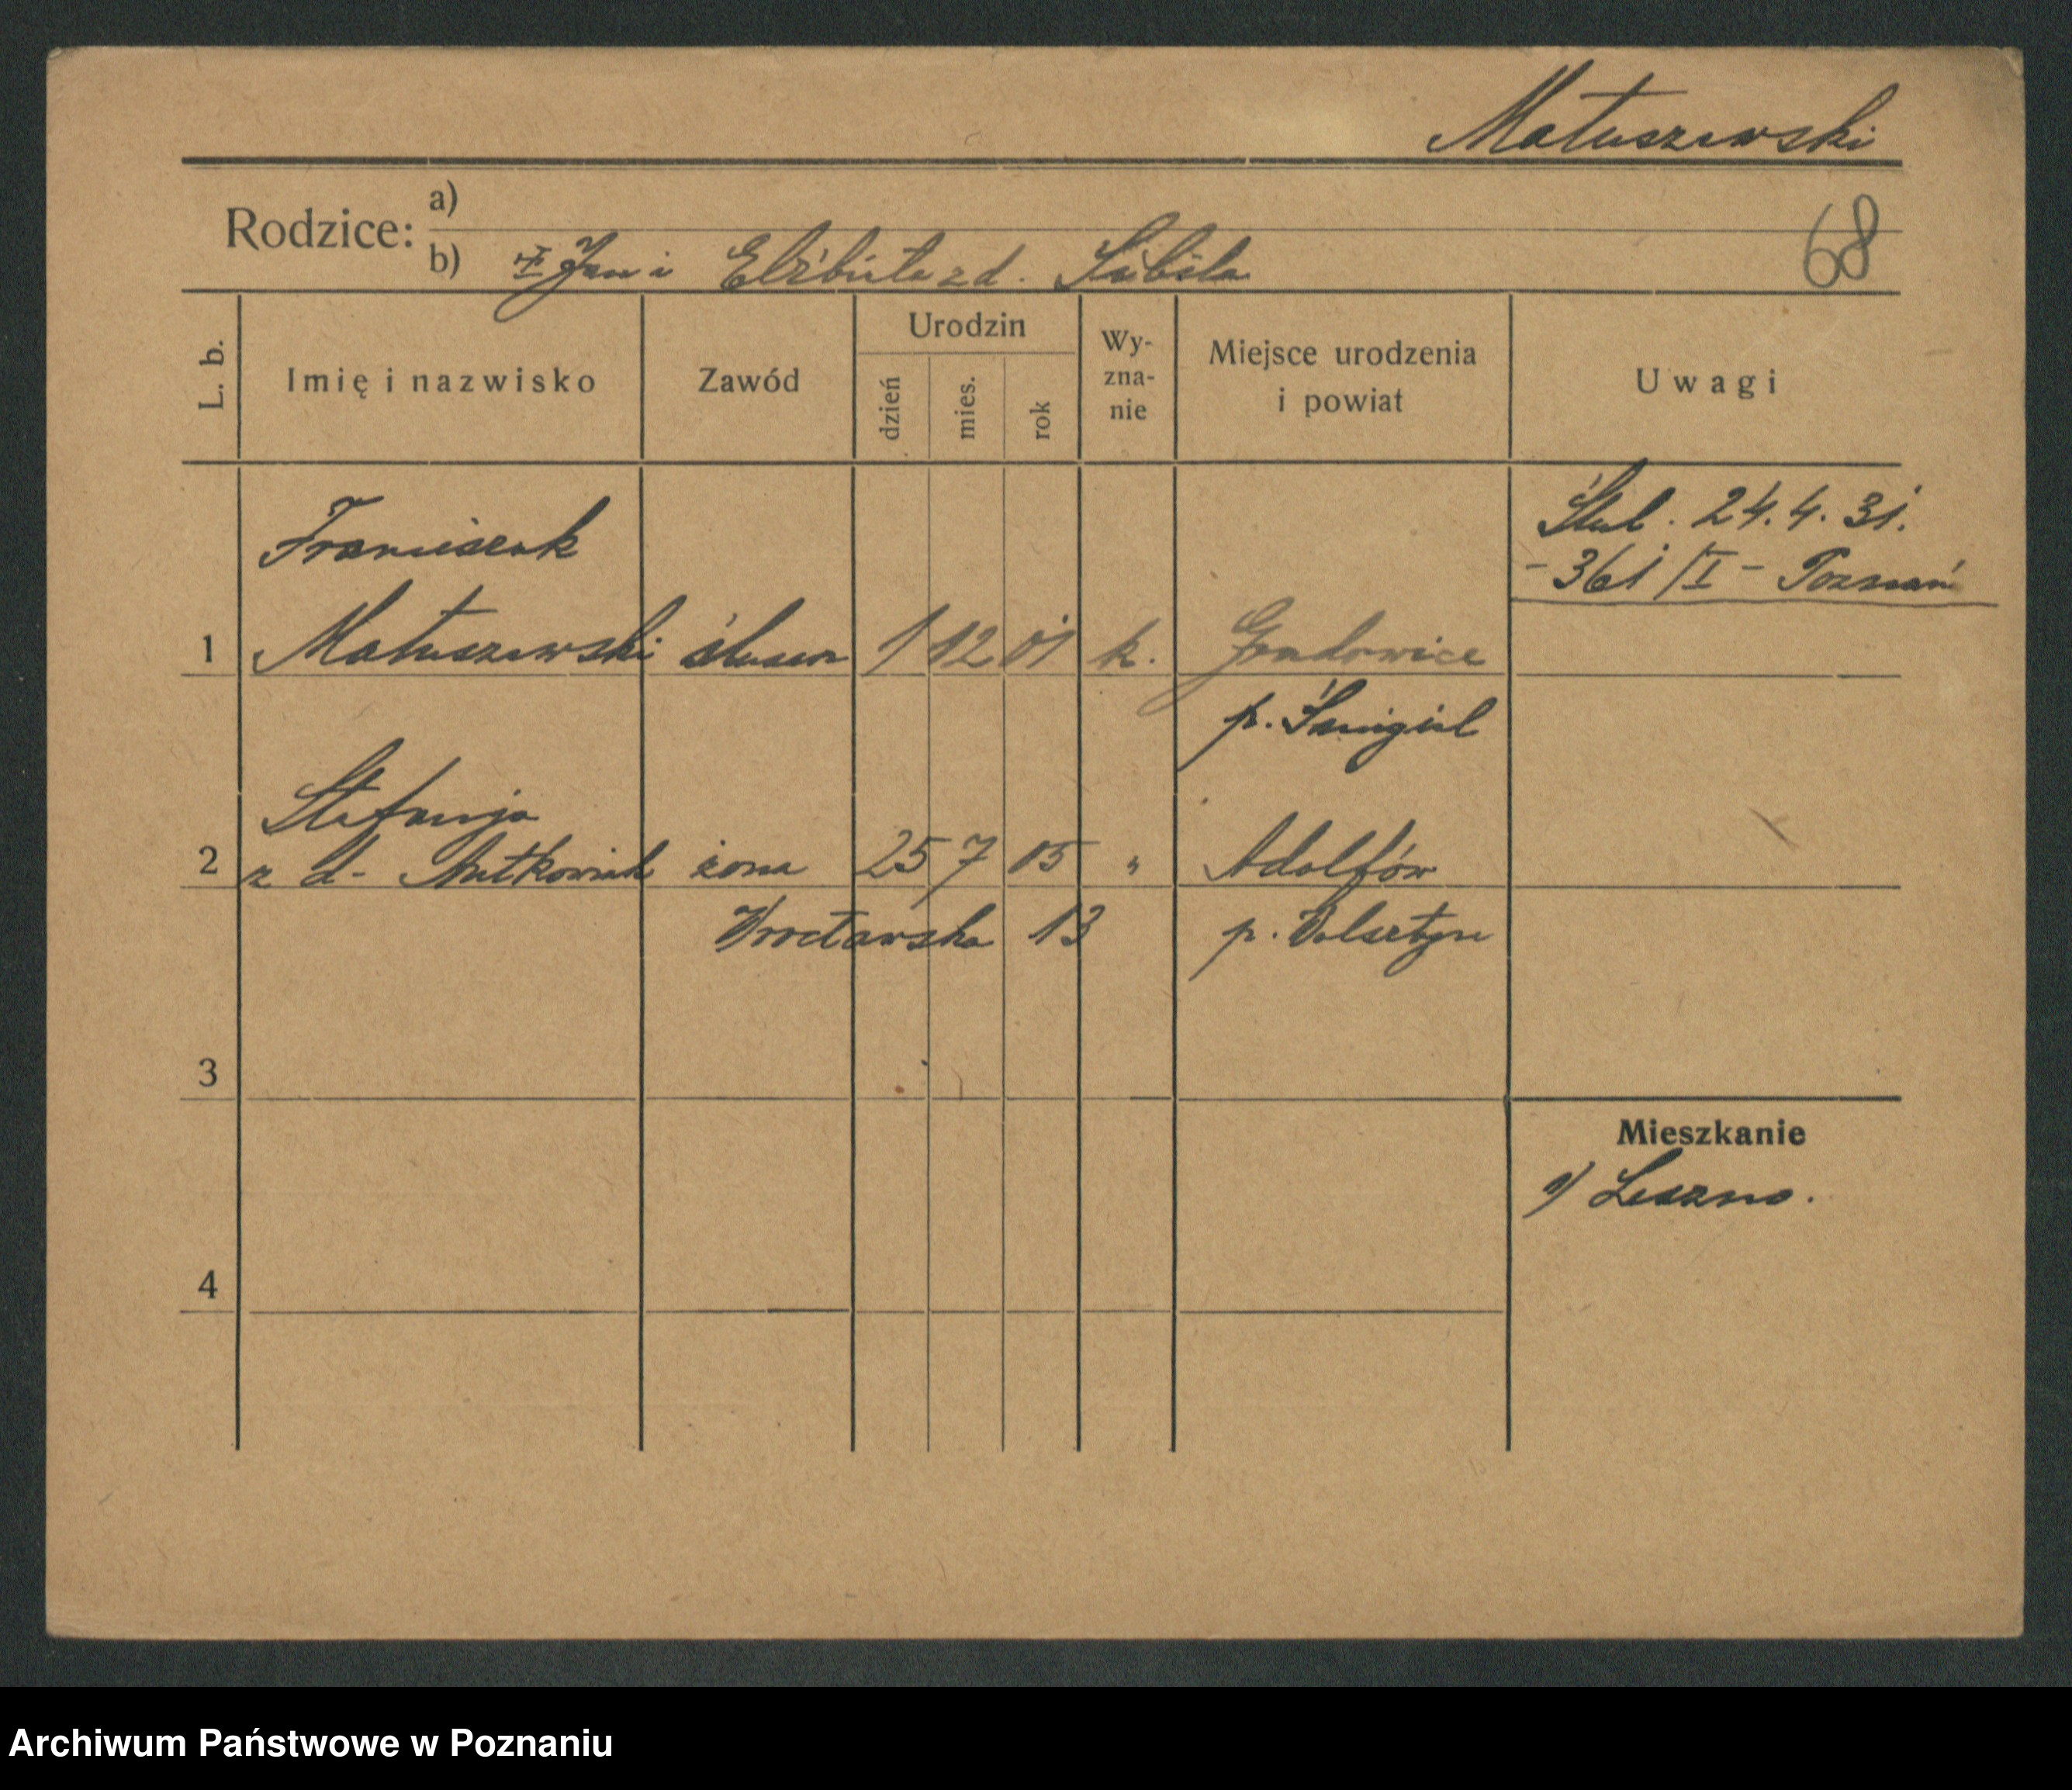 Matuszewski
Rodzice:
a)
b) Jan i Elżbieta z d. Sibila
68
L. b.
Imię i nazwisko
Zawód
Urodzin
dzień
mies.
rok
Wy-
zna-
nie
Miejsce urodzenia
i powiat
Uwagi
Ślub. 24.4.31.
- 361/I - Poznań
Franciszek
1 Matuszewski ślusarz 1 12 01 k. Gradowice
p. Śmigiel
Stefanja
2 z d. Antkowiak żona 25 7 05 " Adolfów
Wrocławska 13 p. Wolsztyn
3
Mieszkanie
1) Leszno.
4
Archiwum Państwowe w Poznaniu